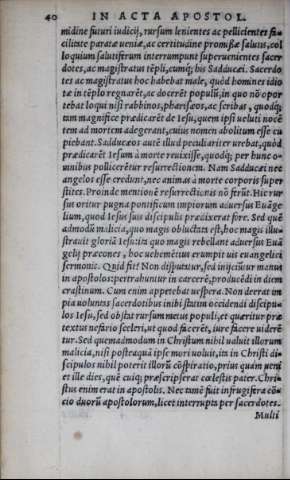 40 IN ACTA APOSTOL.
midine futuri iudicij, rursum lenientes ac pellicientes fa-
cilitate paratæ ueniæ, ac certitudine promißæ salutis, col
loquium salutiferum interrumpunt superuenientes sacer
dotes, ac magistratus tẽpli, cumq́; his Sadducæi. Sacerdo
tes ac magistratus hoc habebat male, quòd homines idio
tæ in tẽplo regnarẽt, ac docerẽt populũ, in quo nõ opor
tebat loqui nisi rabbinos, pharisæos, ac scribas, quodq́;
tam magnifice prædicarẽt de Iesu, quem ipsi ueluti nocẽ
tem ad mortem adegerant, cuius nomen abolitum esse cu
piebant. Sadducæos autẽ illud peculiariter urebat, quòd
prædicarẽt Iesum à morte reuixisse, quodq́; per hunc o-
mnibus pollicerẽtur resurrectionem. Nam Sadducæi nec
angelos esse credunt, nec animas à morte corporis super
stites. Proinde mentionẽ resurrectionis nõ ferũt. Hic rur
sus oritur pugna pontificum impiorum aduersus Euãge
lium, quod Iesus suis discipulis prædixerat fore. Sed quẽ
admodũ malicia, quo magis obluctata est, hoc magis illu-
strauit gloriã Iesu: ita quo magis rebellant aduersus Euã
gelij præcones, hoc uehemẽtius erumpit uis euangelici
sermonis. Quid fit? Non disputatur, sed inijciũtur manus
in apostolos: pertrahuntur in carcerẽ, producẽdi in diem
crastinum. Cum enim appetebat uespera. Non deerat im
pia uoluntas sacerdotibus inibi statim occidendi discipu-
los Iesu, sed obstat rursum metus populi, et quæritur præ
textus nefario sceleri, ut quod facerẽt, iure facere uiderẽ
tur. Sed quemadmodum in Christum nihil ualuit illorum
malicia, nisi posteaquã ipse mori uoluit, ita in Christi di-
scipulos nihil poterit illorũ cõspiratio, prius quàm ueni
et ille dies, quẽ cuiq; præscripserat cœlestis pater. Chri-
stus enim erat in apostolis. Nec tamẽ fuit infrugifera cõ-
cio duorũ apostolorum, licet interrupta per sacerdotes.
Multi